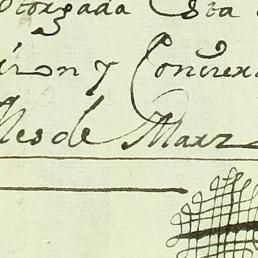 otorgada Esta
iron y Concier
Mes de Marz